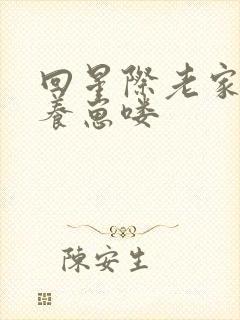 回星際老家
養崽喽
陳安生